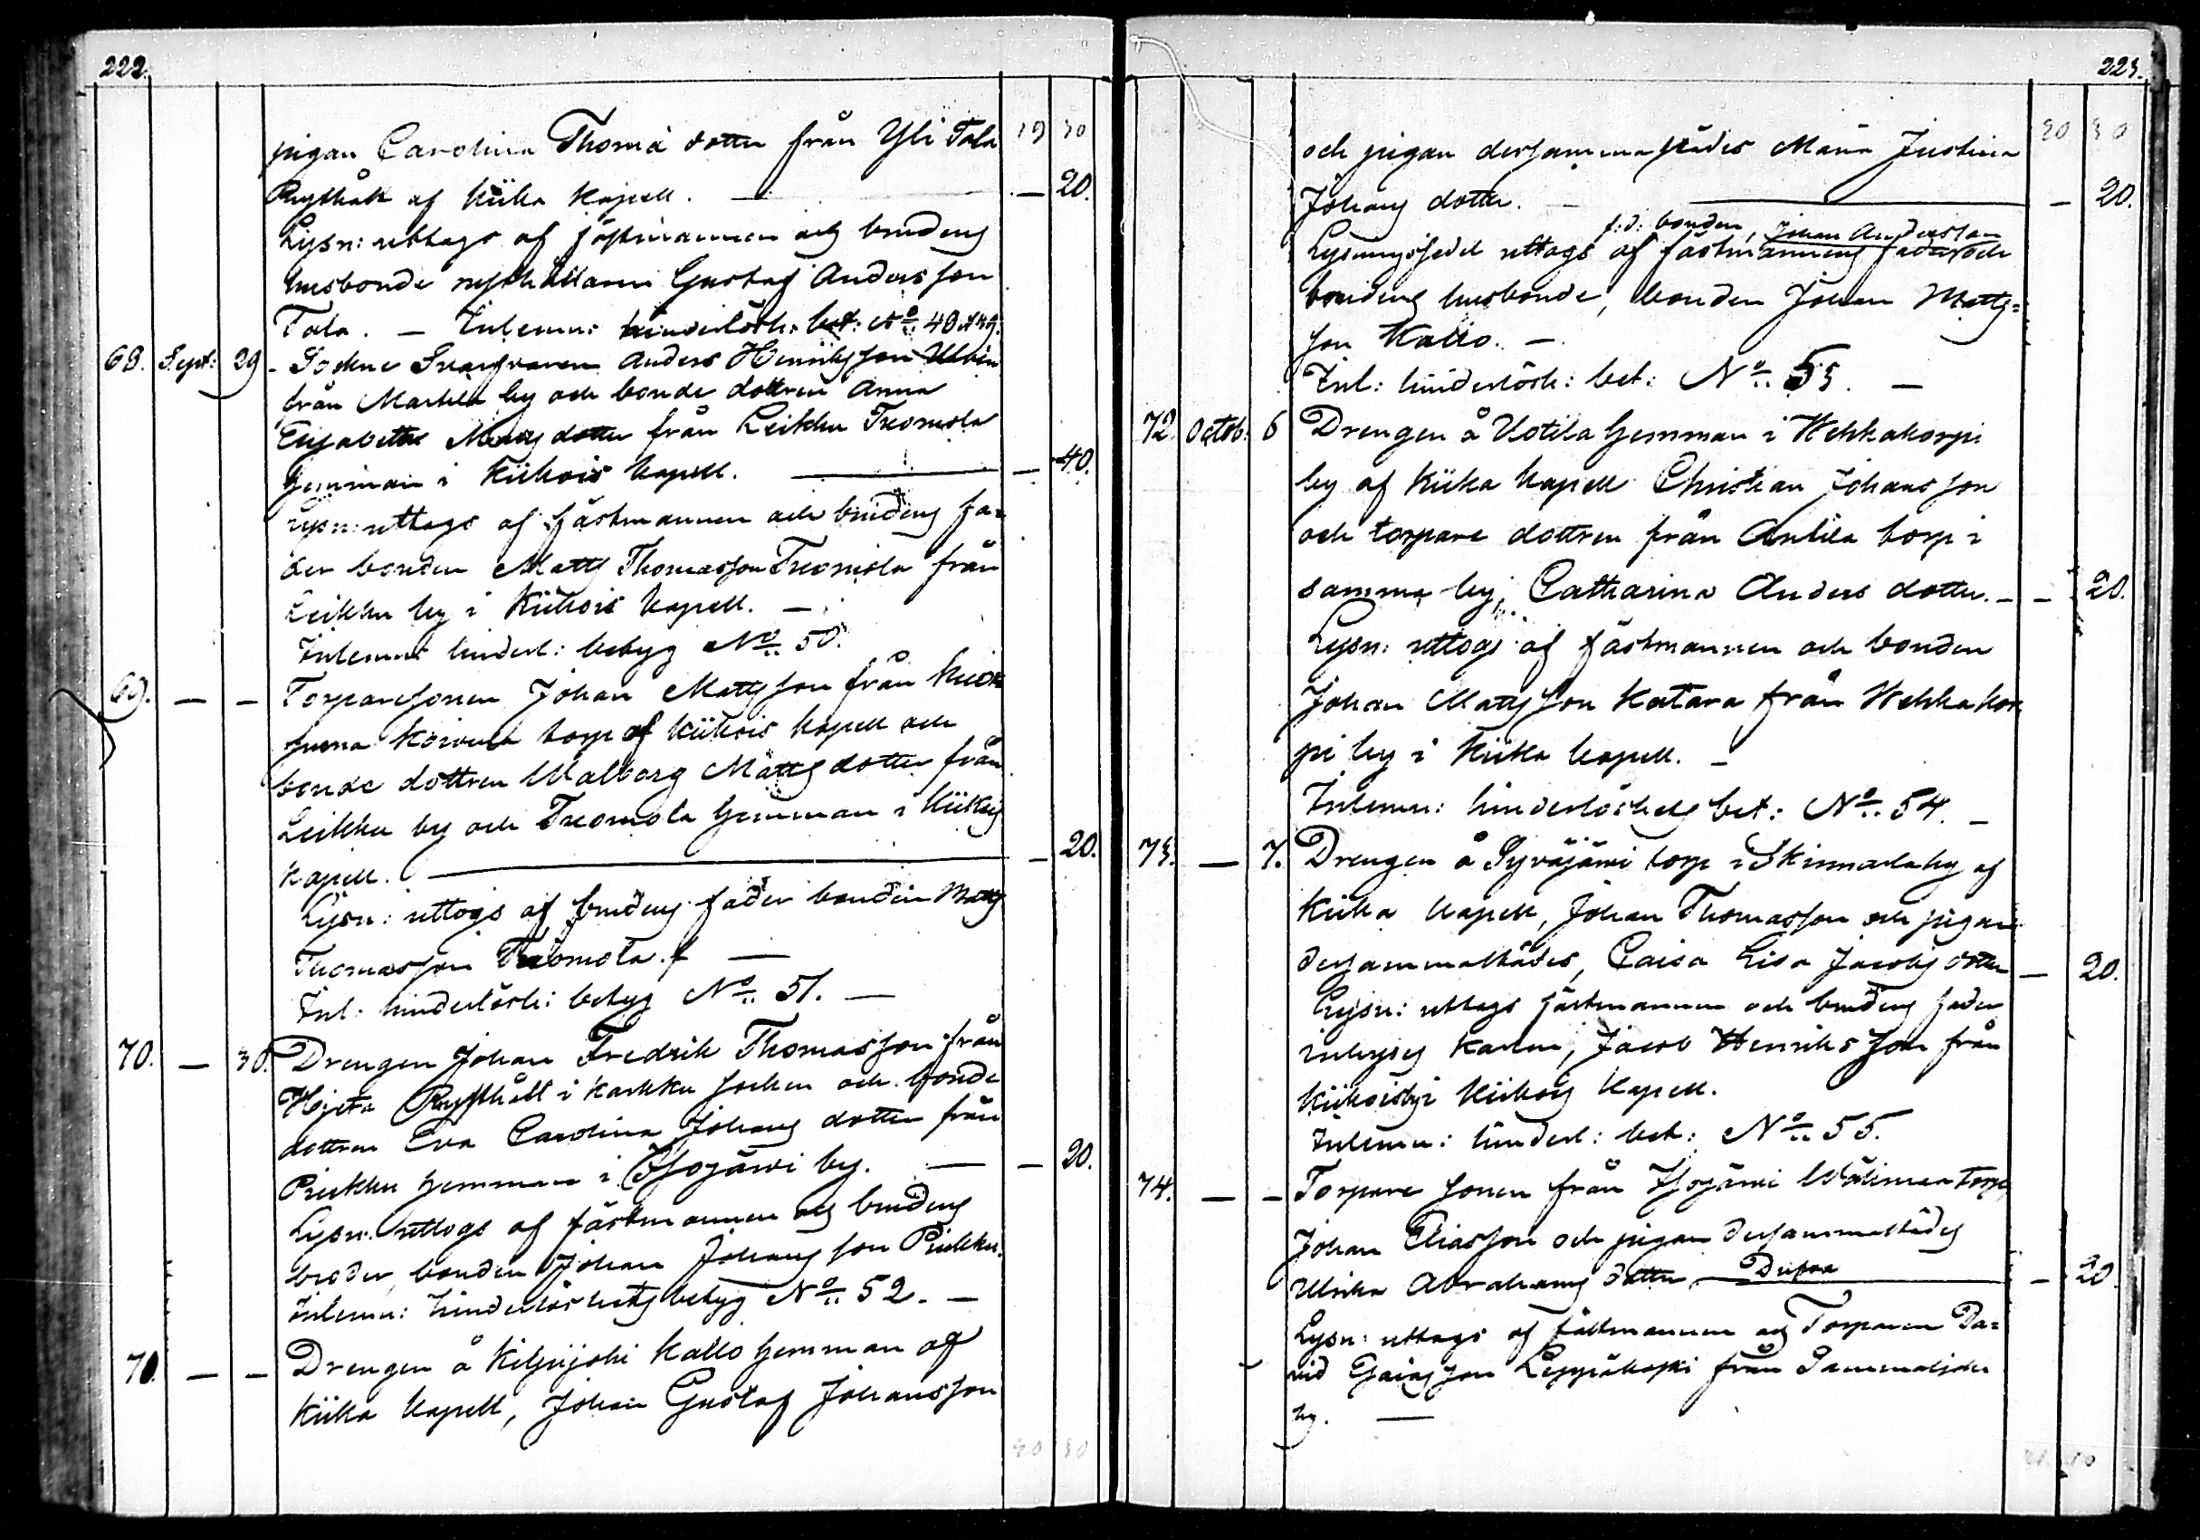 222.
19 30
pigan Carolina Thomædotter från Yli Tala
Rusthåll af Kiika Kapell. — — 20.
Lysn: uttogs af fästmannen och brudens
husbonde rusthållaren Gustaf Andersson
Tala. — Inlemn: hinderlösh: bet: No 40 & 49.
68. Sept: 29 Sockne Skarfvaren Anders Henriksson
från Markila by och bonde dottren Anna
Elisabetha Matts dotter från Leikku Tuomola
hemman i Kiikois Kapell. — — 40.
Lysn: uttogs af fästmannen och brudens fa-
der bonden Matts Thomasson Tuomola från
Leikku by i Kiikois Kapell. —
Inlemn: hinderl: betyg No 50.
69. — — Torparesonen Johan Mattsson från
Koivula torp af Kiikois Kapell och
bonde dottren Walborg Matts dotter från
Leikku by och Tuomola hemman i Kiikois
Kapell. — — 20.
Lysn: uttogs af brudens fader bonden Matts
Thomasson Tuomola. —
Inl: hinderlösh: betyg No 51. —
70. — 30. Drengen Johan Fredrik Thomasson från
Hjeta Rusthåll i Karkku socken och bonde
dottren Eva Carolina Johans dotter från
Piukku hemman i Isojärvi by. — — 20.
Lysn: uttogs af fästmannen och brudens
broder, bonden Johan Johansson Piukku.
Inlemn: hinderlöshets betyg No 52. —
70. — — Drengen å Kilpijoki Kallo hemman af
Kiika Kapell, Johan Gustaf Johansson
20 30
223.
20 30
och pigan dersammastädes Maria Justina
Johans dotter. — — 20.
f.d. bonden, Johan Andersson
Lysningssedel uttogs af fästmannens fader och
brudens husbonde, bonden Johan Matts-
son Kallo. —
Inl: hinderlösh: bet: No 53. —
72. Octob: 6 Drengen å Uotila hemman i Wehkakorpi
by af Kiika Kapell Christian Johansson
och torpare dottren från Antila torp i
samma by, Catharina Anders dotter. — — 20.
Lysn: uttogs af fästmannen och bonden
Johan Mattsson Katara från Wehkakor-
pi by i Kiika Kapell. —
Inlemn: hinderlöshets bet: No 54. —
73. — 7. Drengen å Syväjärvi torp i Skinnarla by af
Kiika Kapell, Johan Thomasson och pigan
dersammastädes, Caisa Lisa Jacobs dotter — 20.
Lysn: uttogs fästmannen och brudens fader
inhyses karlen, Jacob Henriksson från
Kiikois by i Kiikois Kapell.
Inlemn: hinderl: bet: No 55.
74. — — Torpare sonen från Isojärvi Wälimaa torp
Johan Eliasson och pigan dersammastädes
Ulrika Abrahams dotter — 20
Lysn: uttogs af fästmannen och Torparen Da-
vid Leppäkoski från Sammaljoki
by. —